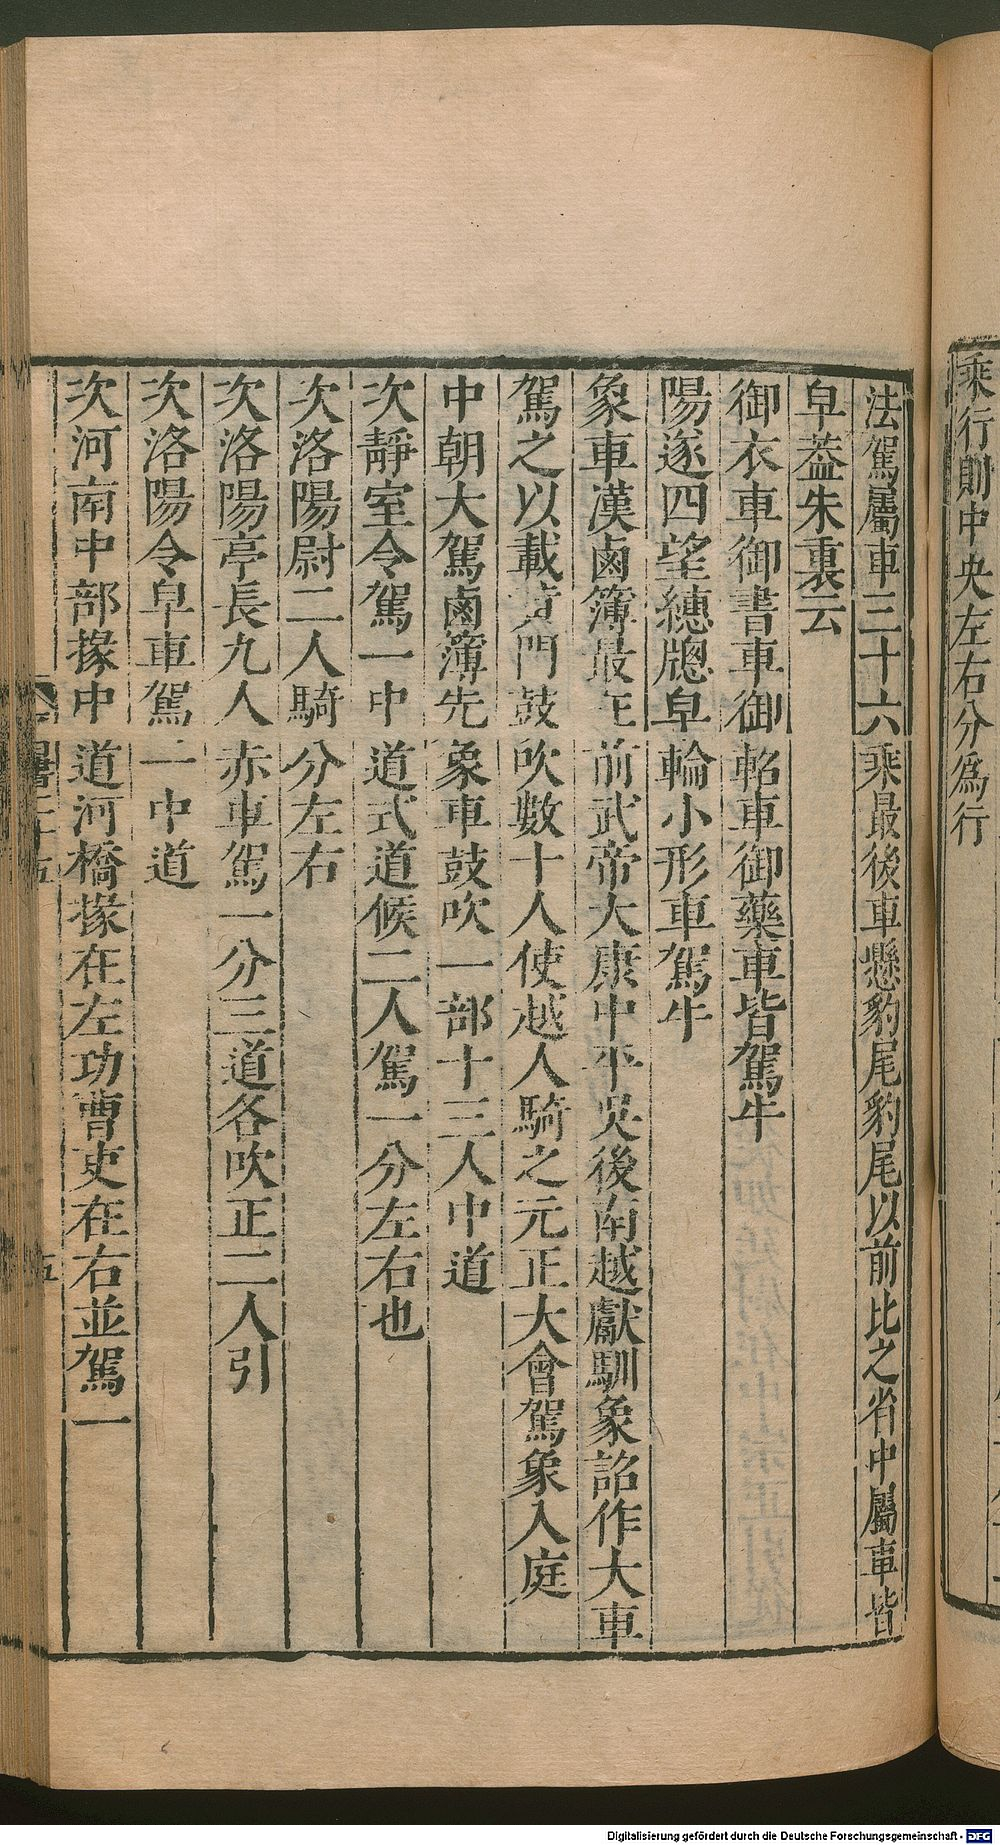 乘行則中央左右分爲行
法駕屬車三十六乘最後車懸豹尾豹尾以前比之省中屬車皆
皁蓋朱裏云
御衣車御書車御軺車御藥車皆駕牛
陽遂四望繐牕皁輪小形車駕牛
象車漢鹵簿最在前武帝大康中平吳後南越獻馴象詔作大車
駕之以載黃門鼓吹數十人使越人騎之元正大會駕象入庭
中朝大駕鹵簿先象車鼓吹一部十三人中道
次靜室令駕一中道式道候二人駕一分左右也
次洛陽尉二人騎分左右
次洛陽亭長九人赤車駕一分三道各吹正二人引
次洛陽令皁車駕一中道
次河南中部掾中道河橋掾在左功曹吏在右並駕一
五
Digitalisierung gefördert durch die Deutsche Forschungsgemeinschaft - DFG